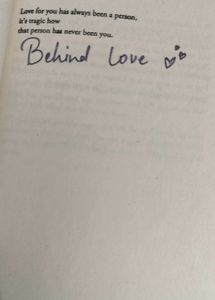 Love for you has always been a person,
it's tragic how
that person has never been you.
Behind Love